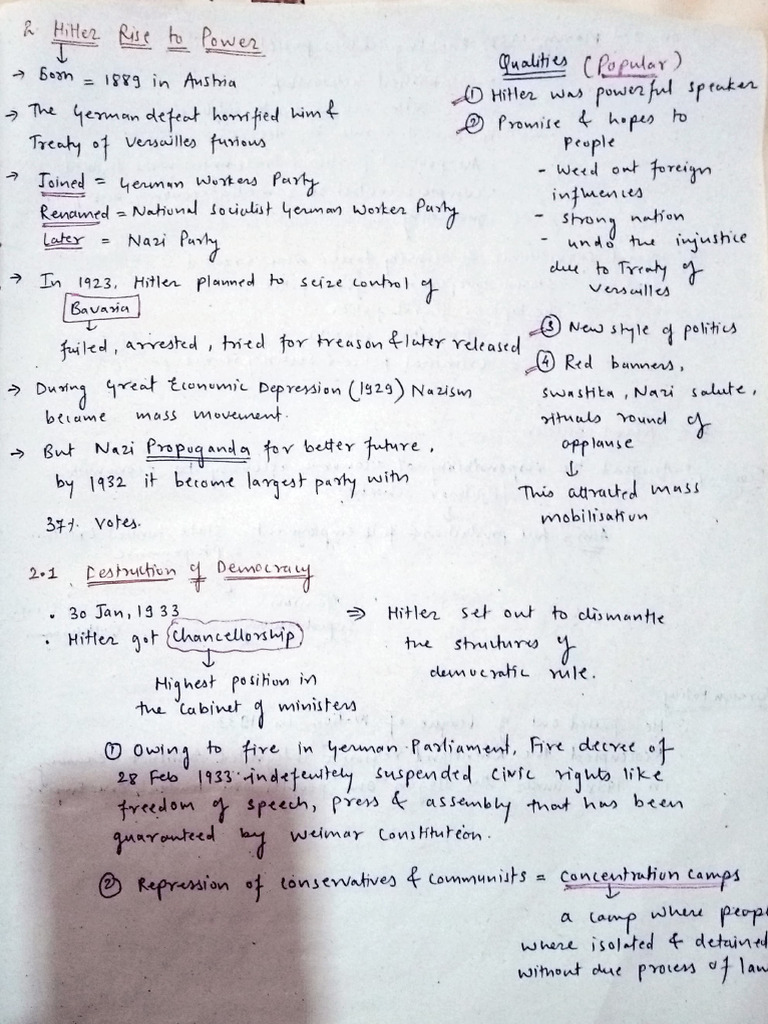 2. Hitler Rise to Power
→ Born = 1889 in Austria
→ The German defeat horrified him &
Treaty of Versailles furious
→ Joined = German Workers Party
Renamed = National Socialist German Worker Party
Later = Nazi Party
→ In 1923, Hitler planned to seize control of
Bavaria
↓
failed, arrested, tried for treason & later released
→ During Great Economic Depression (1929) Nazism
became mass movement.
→ But Nazi Propuganda for better future,
by 1932 it become largest party with
37% votes.
Qualities (Popular)
① Hitler was powerful speaker
② Promise & hopes to
People
- Weed out foreign
influences
- strong nation
- undo the injustice
due to Treaty of
Versailles
③ New style of politics
④ Red banners,
swastika, Nazi salute,
rituals round of
applause
↓
This attracted mass
mobilisation
2.1 Destruction of Democracy
• 30 Jan, 1933
• Hitler got Chancellorship
↓
Highest position in
the cabinet of ministers
⇒ Hitler set out to dismantle
the structures of
democratic rule.
① Owing to fire in German Parliament, Fire decree of
28 Feb 1933 indefenitely suspended civic rights like
freedom of speech, press & assembly that has been
guaranteed by Weimar Constitution.
② Repression of conservatives & communists = concentration camps
↓
a camp where peop
where isolated & detained
without due process of law